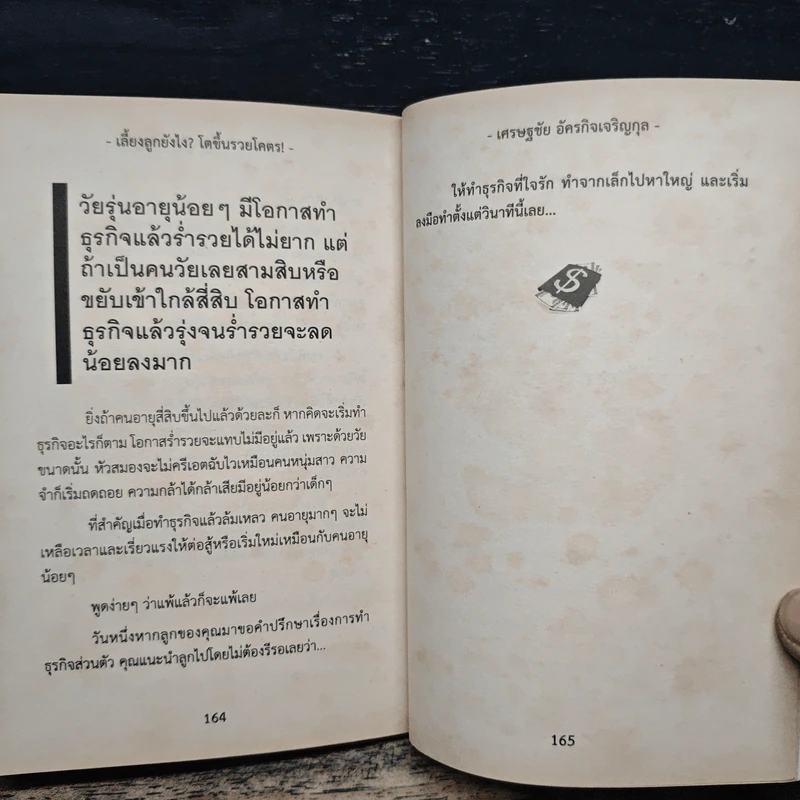 - เลี้ยงลูกยังไง? โตขึ้นรวยโคตร! -
วัยรุ่นอายุน้อยๆ มีโอกาสทำ
ธุรกิจแล้วร่ำรวยได้ไม่ยาก แต่
ถ้าเป็นคนวัยเลยสามสิบหรือ
ขยับเข้าใกล้สี่สิบ โอกาสทำ
ธุรกิจแล้วรุ่งจนร่ำรวยจะลด
น้อยลงมาก
ยิ่งถ้าคนอายุสี่สิบขึ้นไปแล้วด้วยละก็ หากคิดจะเริ่มทำ
ธุรกิจอะไรก็ตาม โอกาสร่ำรวยจะแทบไม่มีอยู่แล้ว เพราะด้วยวัย
ขนาดนั้น หัวสมองจะไม่ครีเอตฉับไวเหมือนคนหนุ่มสาว ความ
จำก็เริ่มถดถอย ความกล้าได้กล้าเสียมีอยู่น้อยกว่าเด็กๆ
ที่สำคัญเมื่อทำธุรกิจแล้วล้มเหลว คนอายุมากๆ จะไม่
เหลือเวลาและเรี่ยวแรงให้ต่อสู้หรือเริ่มใหม่เหมือนกับคนอายุ
น้อยๆ
พูดง่ายๆ ว่าแพ้แล้วก็จะแพ้เลย
วันหนึ่งหากลูกของคุณมาขอคำปรึกษาเรื่องการทำ
ธุรกิจส่วนตัว คุณแนะนำลูกไปโดยไม่ต้องรีรอเลยว่า...
164
- เศรษฐชัย อัครกิจเจริญกุล -
ให้ทำธุรกิจที่ใจรัก ทำจากเล็กไปหาใหญ่ และเริ่ม
ลงมือทำตั้งแต่วินาทีนี้เลย...
$
165